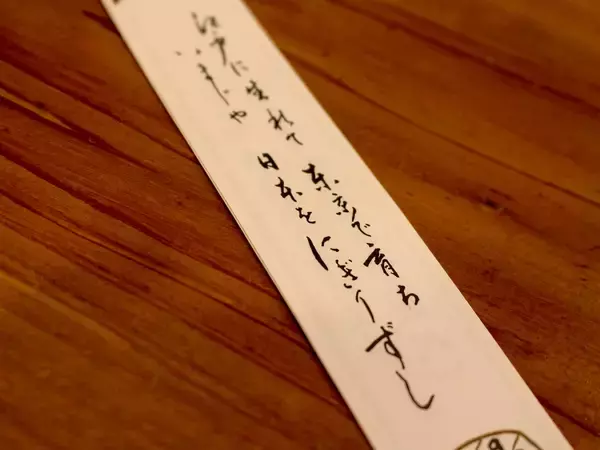 江戸に生れて 東京で育ち
いまじゃ 日本を にぎりずし